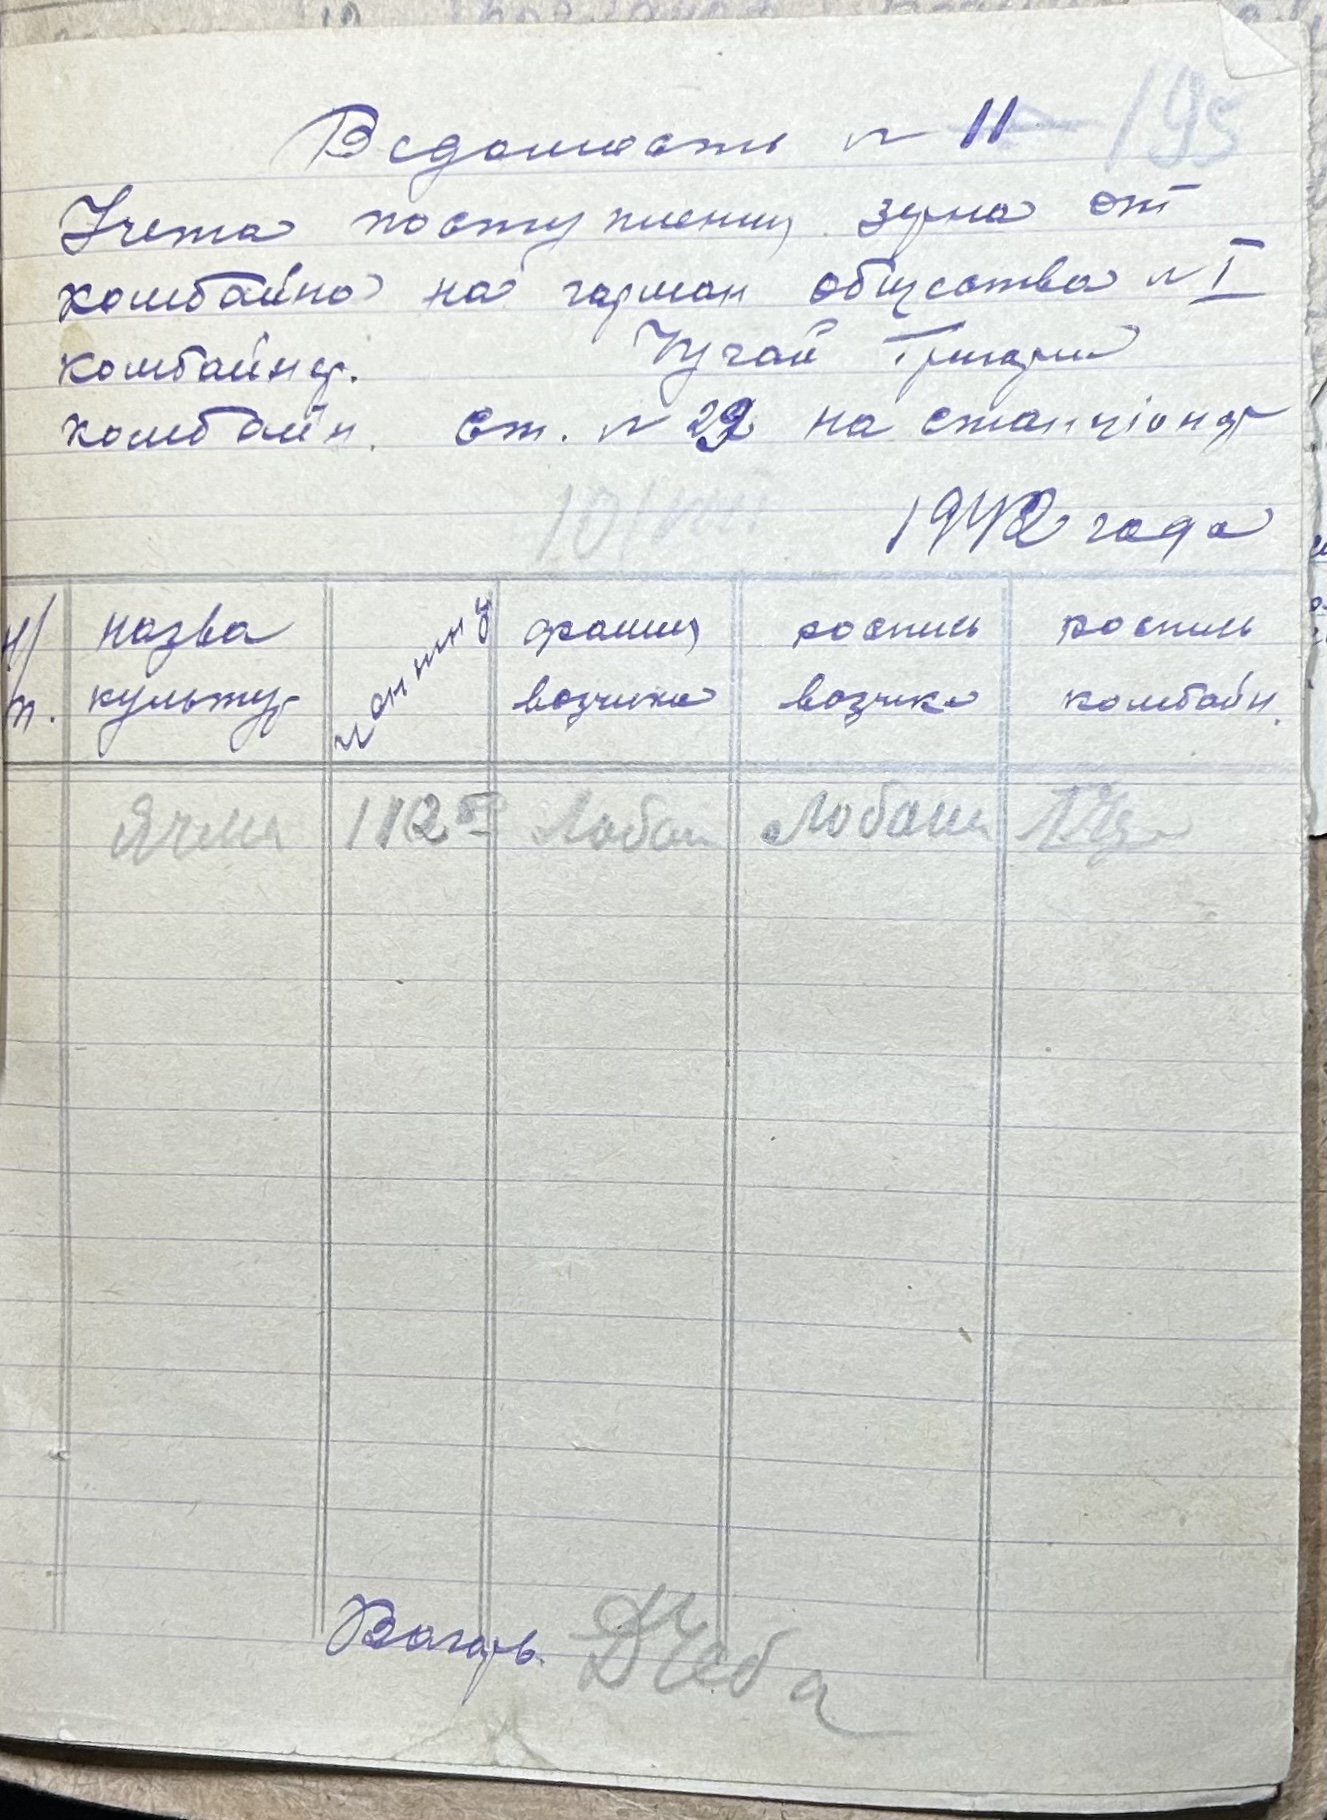 195
Ведомость № 11
Учета поступления зерна от
комбайна на гарман общества № I
комбайнер. Чучай Григорий
комбайн. ст. № 29 на станціонар
10/VIII 1942 года
н/п. назва культур тонниц фамил возчика роспись возчика роспись комбайн.
Ячмен 112 Лобан Лобань
Вагарь. ДЧеба